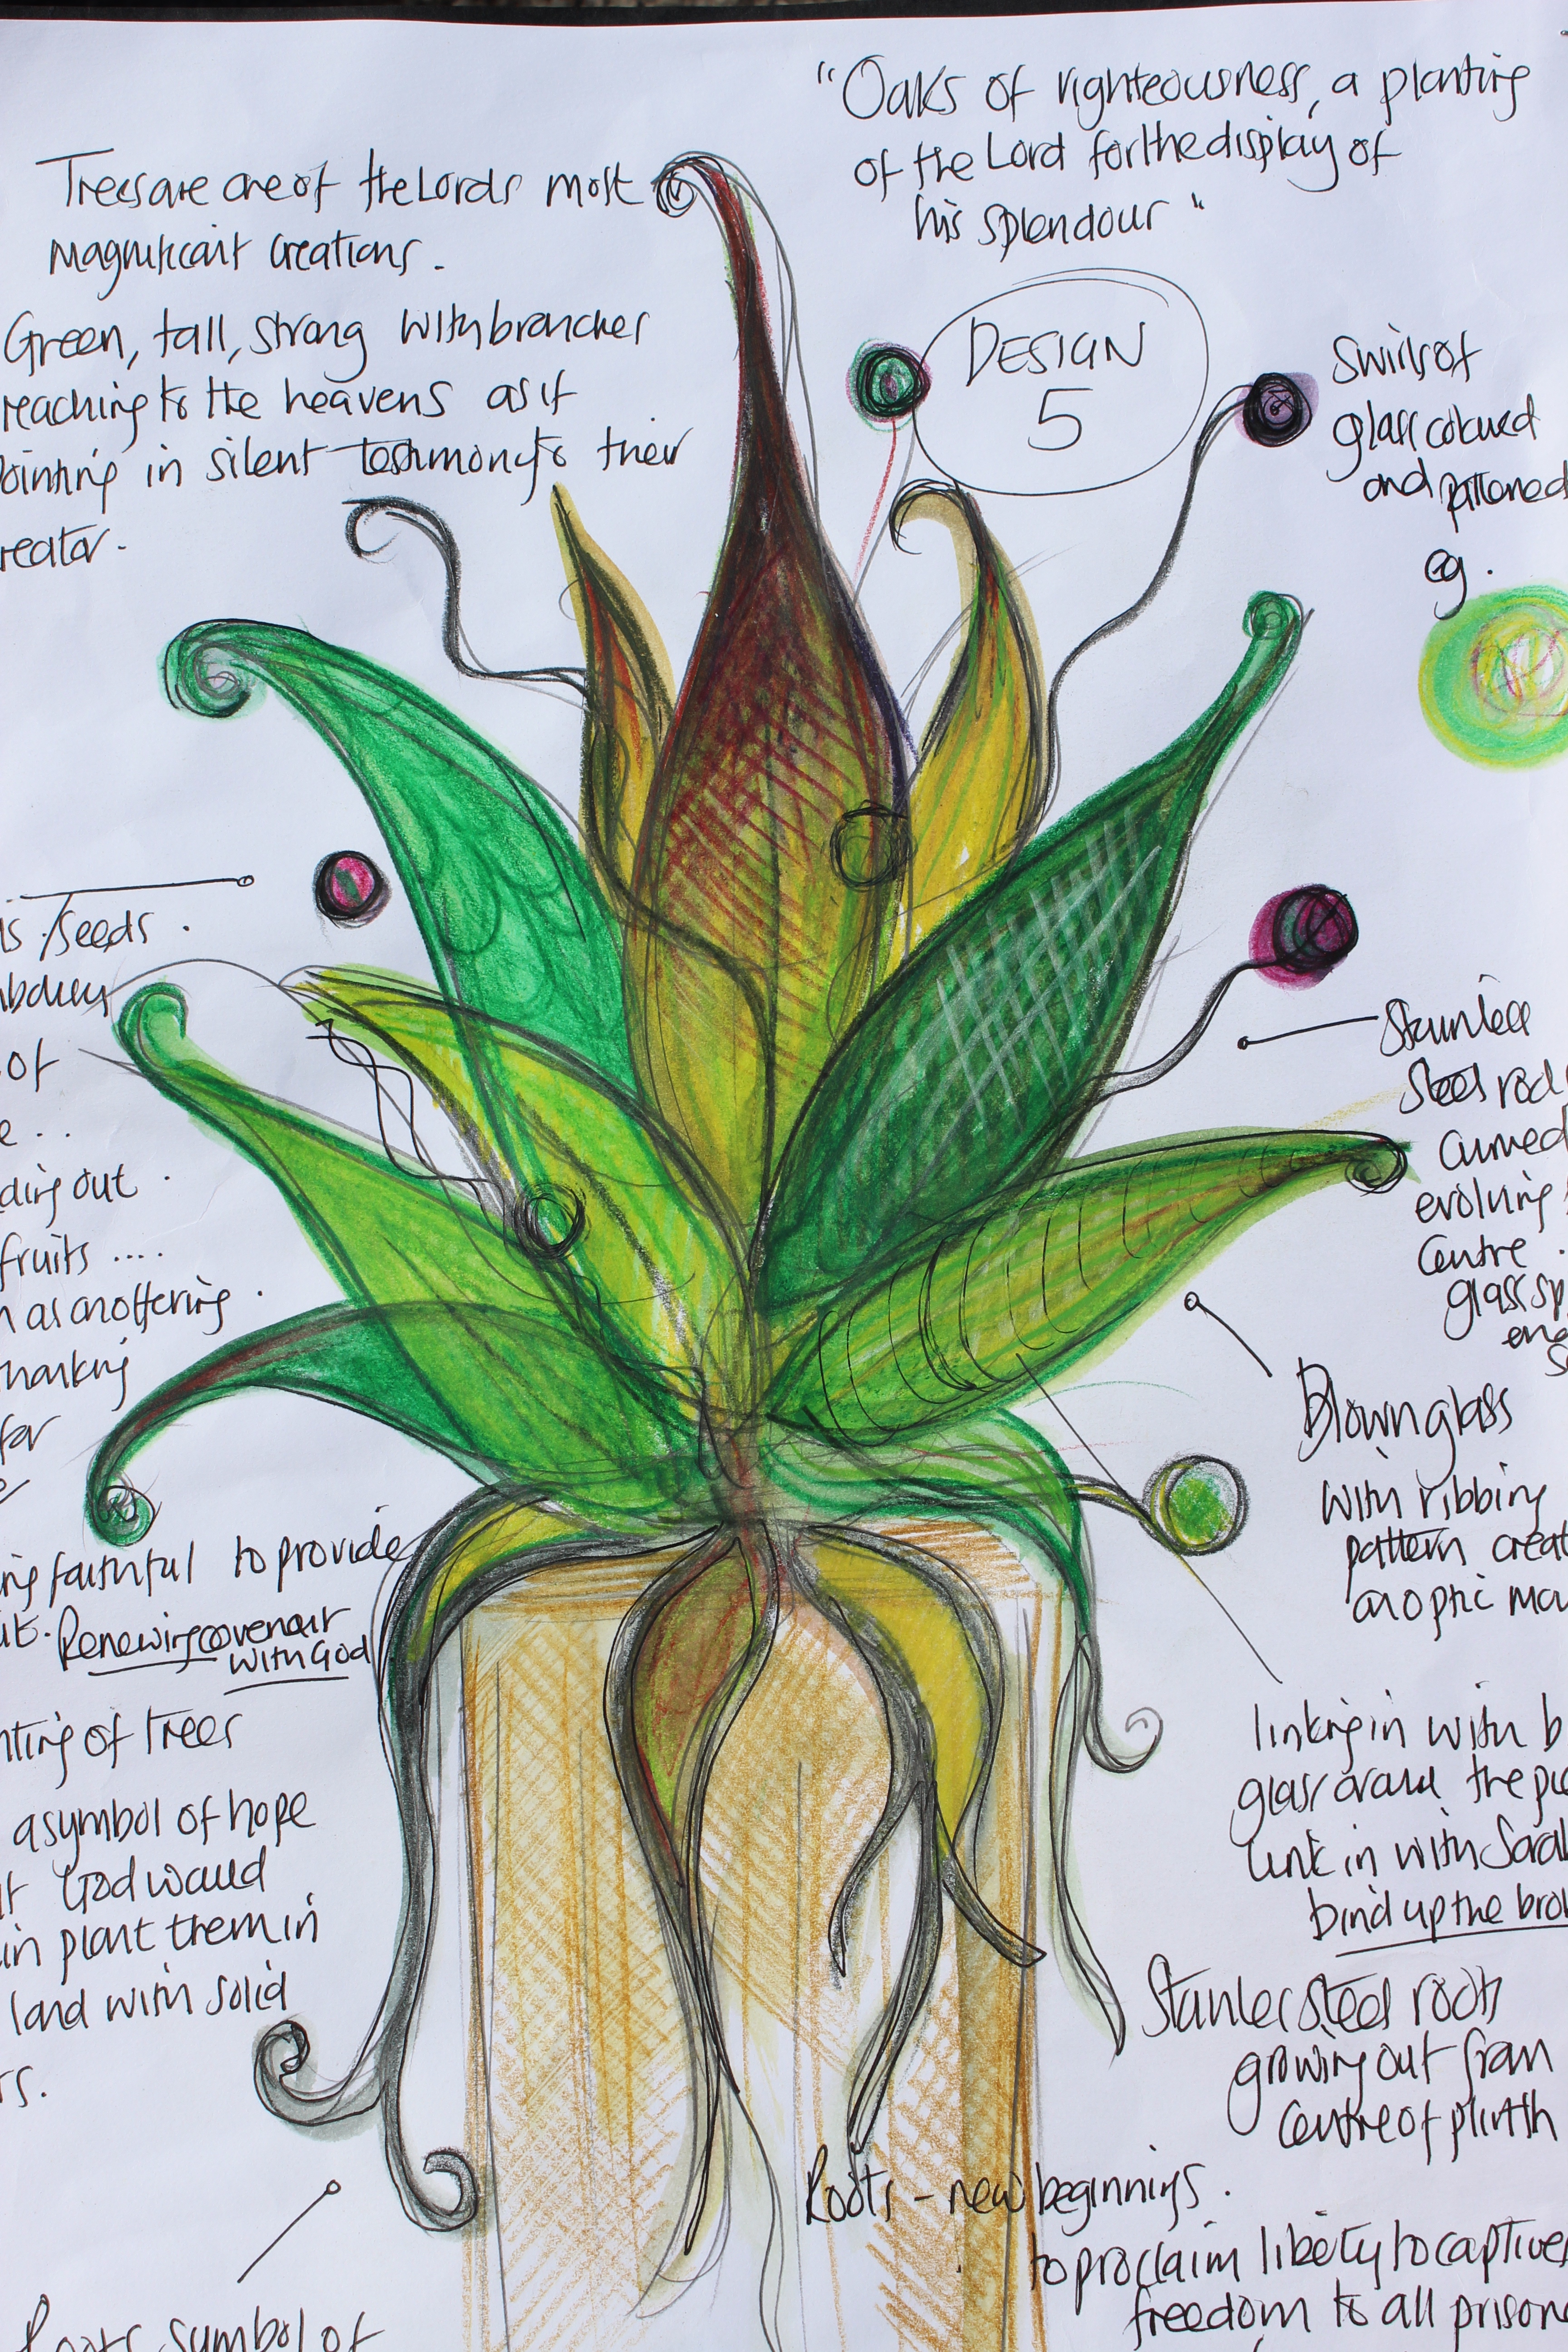 "Oaks of righteousness, a planting
of the Lord for the display of
his splendour"
Trees are one of the Lords most
magnificant creations.
Green, tall, strong with branches
reaching to the heavens as if
pointing in silent testimony to their
reator.
DESIGN
5
Swirls of
glass coloured
and patterned
eg.
/seeds.
of
ding out.
fruits ....
as an offering.
hanking
for
Stainless
Steel rod
curved
evolving
Centre.
glass
Blown glass
with ribbing
pattern creat
an optic
ing faithful to provide
Renewing covenant
with God
nting of trees
a symbol of hope
God would
in plant them in
land with solid
rs.
linking in with b
glass around the
Link in with Sara
bind up the bro
Stainless steel roots
growing out from
Centre of plinth
Roots - new beginnings.
to proclaim liberty to captives
freedom to all prison
Roots symbol of